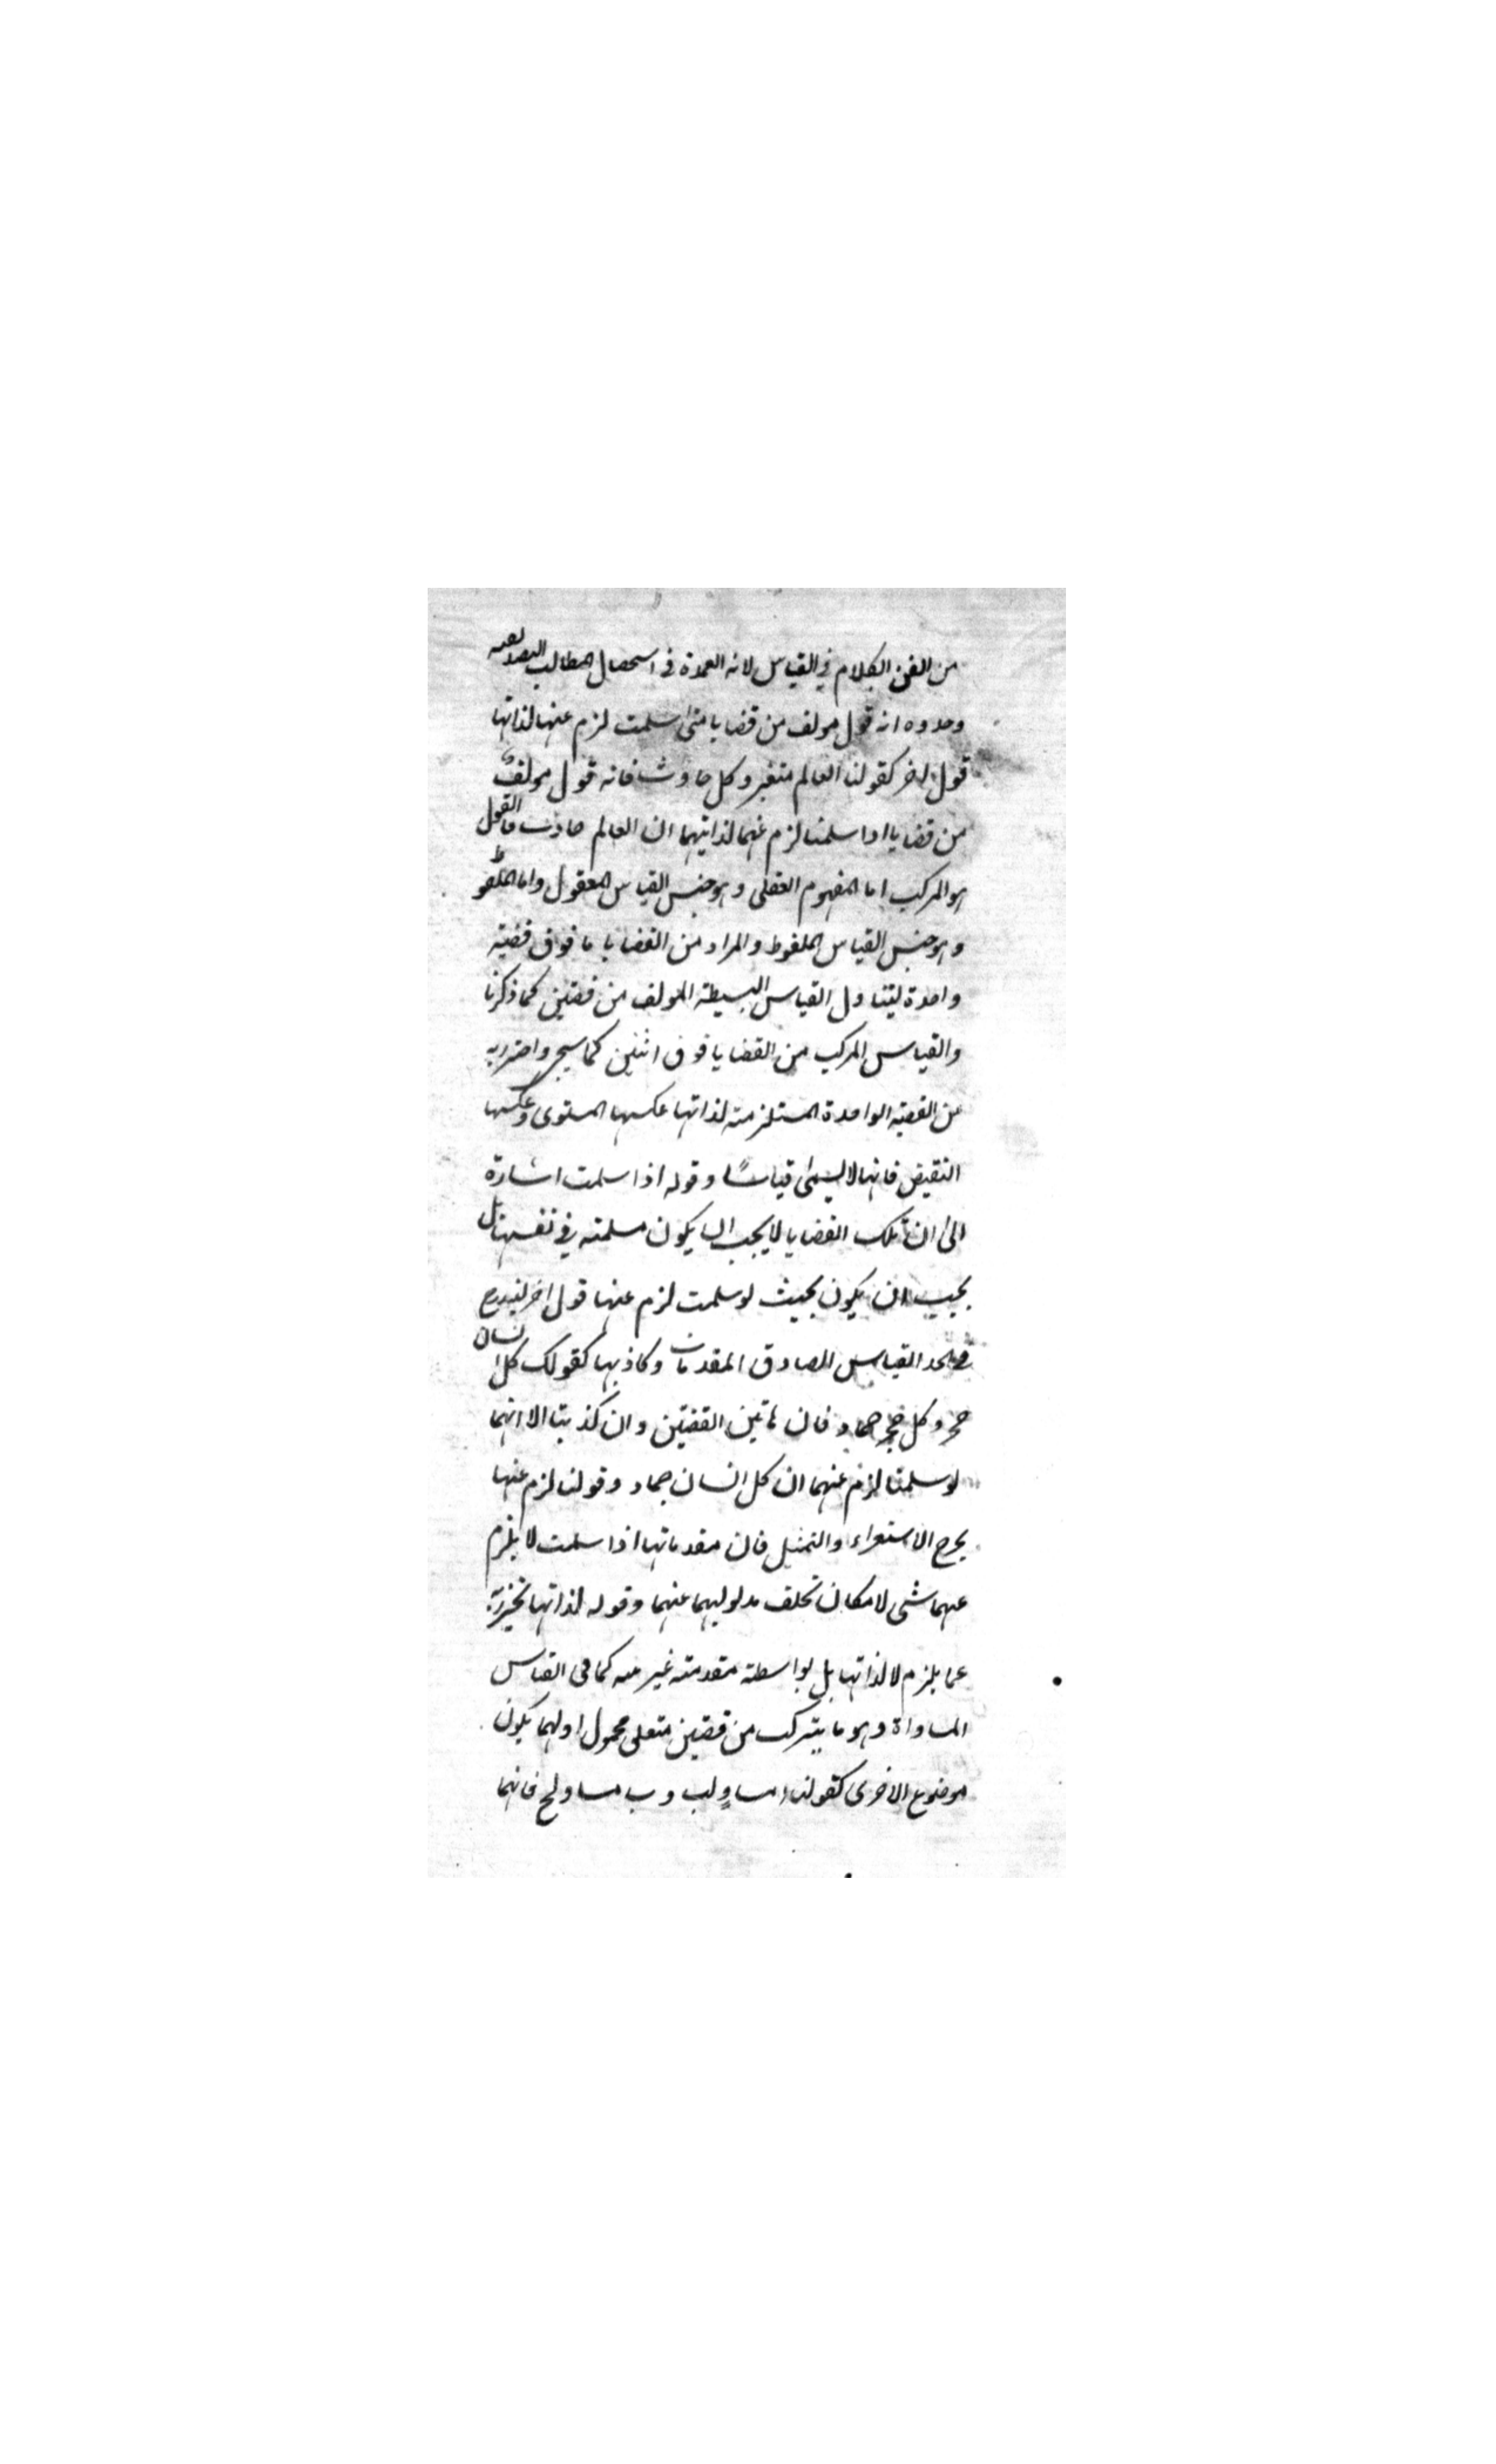 من الفن الكلام في القياس لانه العمدة في استحصال المطالب التصديقية
وحدوه انه قول مولف من قضايا متى سلمت لزم عنها لذاتها
قول اخر كقولنا العالم متغير وكل حادث فانه قول مولف
من قضايا اذا سلمتا لزم عنهما لذاتيهما ان العالم حادث فالقول
هو المركب اما المفهوم العقلى وهو جنس القياس المعقول واما الملفوظ
وهو جنس القياس الملفوظ والمراد من القضايا ما فوق قضية
واحدة ليتناول القياس البسيطة المولف من قضيتين كما ذكرنا
والقياس المركب من القضايا فوق اثنين كما سيجئ واحترز به
عن القضية الواحدة المستلزمة لذاتها عكسها المستوى وعكسها
النقيض فانها لا يسمى قياسًا وقوله اذا سلمت اشارة
الى ان تلك القضايا لا يجب ان يكون مسلمة في نفسها بل
يجيب ان يكون بحيث لو سلمت لزم عنها قول اخر ليندرج
في الحد القياس الصادق المقدمات وكاذبها كقولك كل انسان
حجر وكل حجر جماد فان هاتين القضيتين وان كذبتا الا انهما
لو سلمتا لزم عنهما ان كل انسان جماد وقولنا لزم عنها
يخرج الاستقراء والتمثيل فان مقدماتها اذا سلمت لا يلزم
عنهما شى لامكان تخلف مدلوليهما عنهما وقوله لذاتها يحترز به
عما يلزم لا لذاتها بل بواسطة مقدمة غير بينه كما فى القياس
المساواة وهو ما يتركب من قضيتين متعلق محمول اولهما يكون
موضوع الاخرى كقولنا ا مساوٍ لب وب مساو لج فانهما